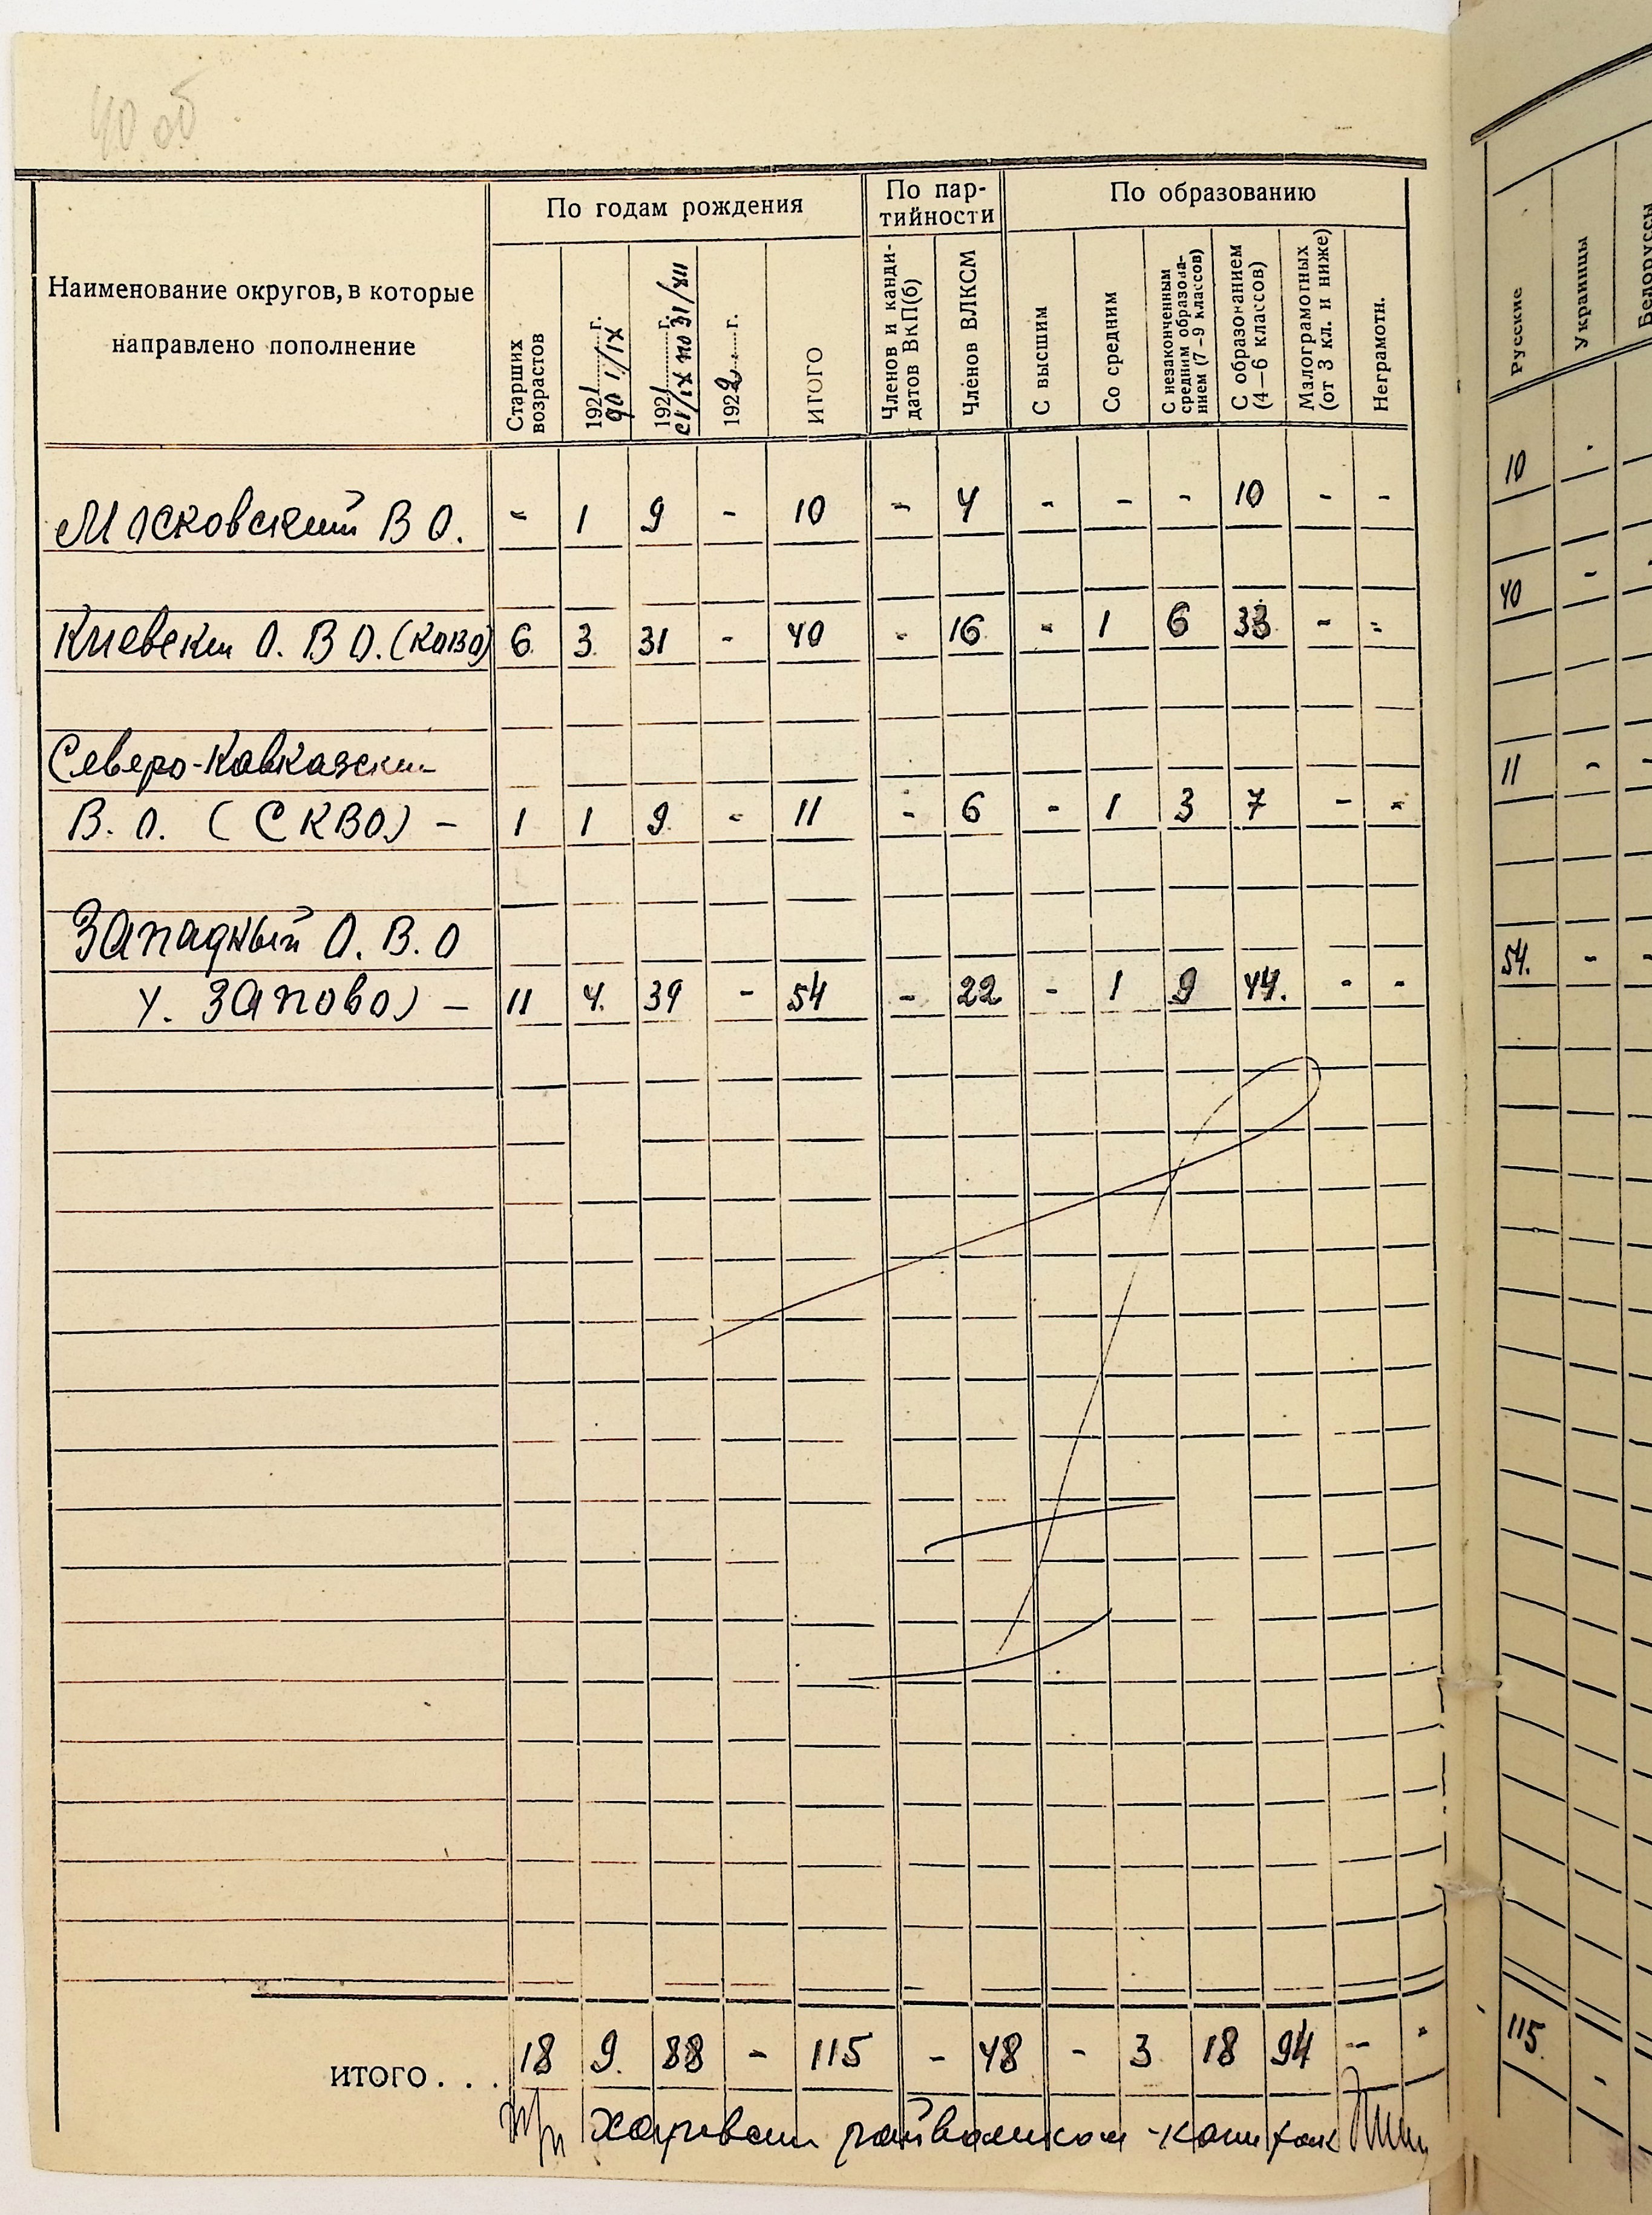 40 об
Наименование округов, в которые
направлено пополнение
По годам рождения
По пар-
тийности
По образованию
Старших
возрастов
1921 г.
до 1/IX
1921 г.
с 1/IX по 31/XII
1922 г.
ИТОГО
Членов и канди-
датов ВКП(б)
Членов ВЛКСМ
С высшим
Со средним
С незаконченным
средним образова-
нием (7–9 классов)
С образованием
(4–6 классов)
Малограмотных
(от 3 кл. и ниже)
Неграмотн.
Русские
Украинцы
Белоруссы
Московский ВО. - 1 9 - 10 - 4 - - - 10 - - 10 -
Киевский О. В О. (КОВО) 6 3 31 - 40 - 16 - 1 6 33 - - 40 -
Северо-Кавказский
В. О. (СКВО) - 1 1 9 - 11 - 6 - 1 3 7 - - 11 -
Западный О. В. О
Запово) - 11 4 39 - 54 - 22 - 1 9 44. - - 54. - -
ИТОГО . . . 18 9. 88 - 115 - 48 - 3 18 94 - - 115. -
райвоенком -